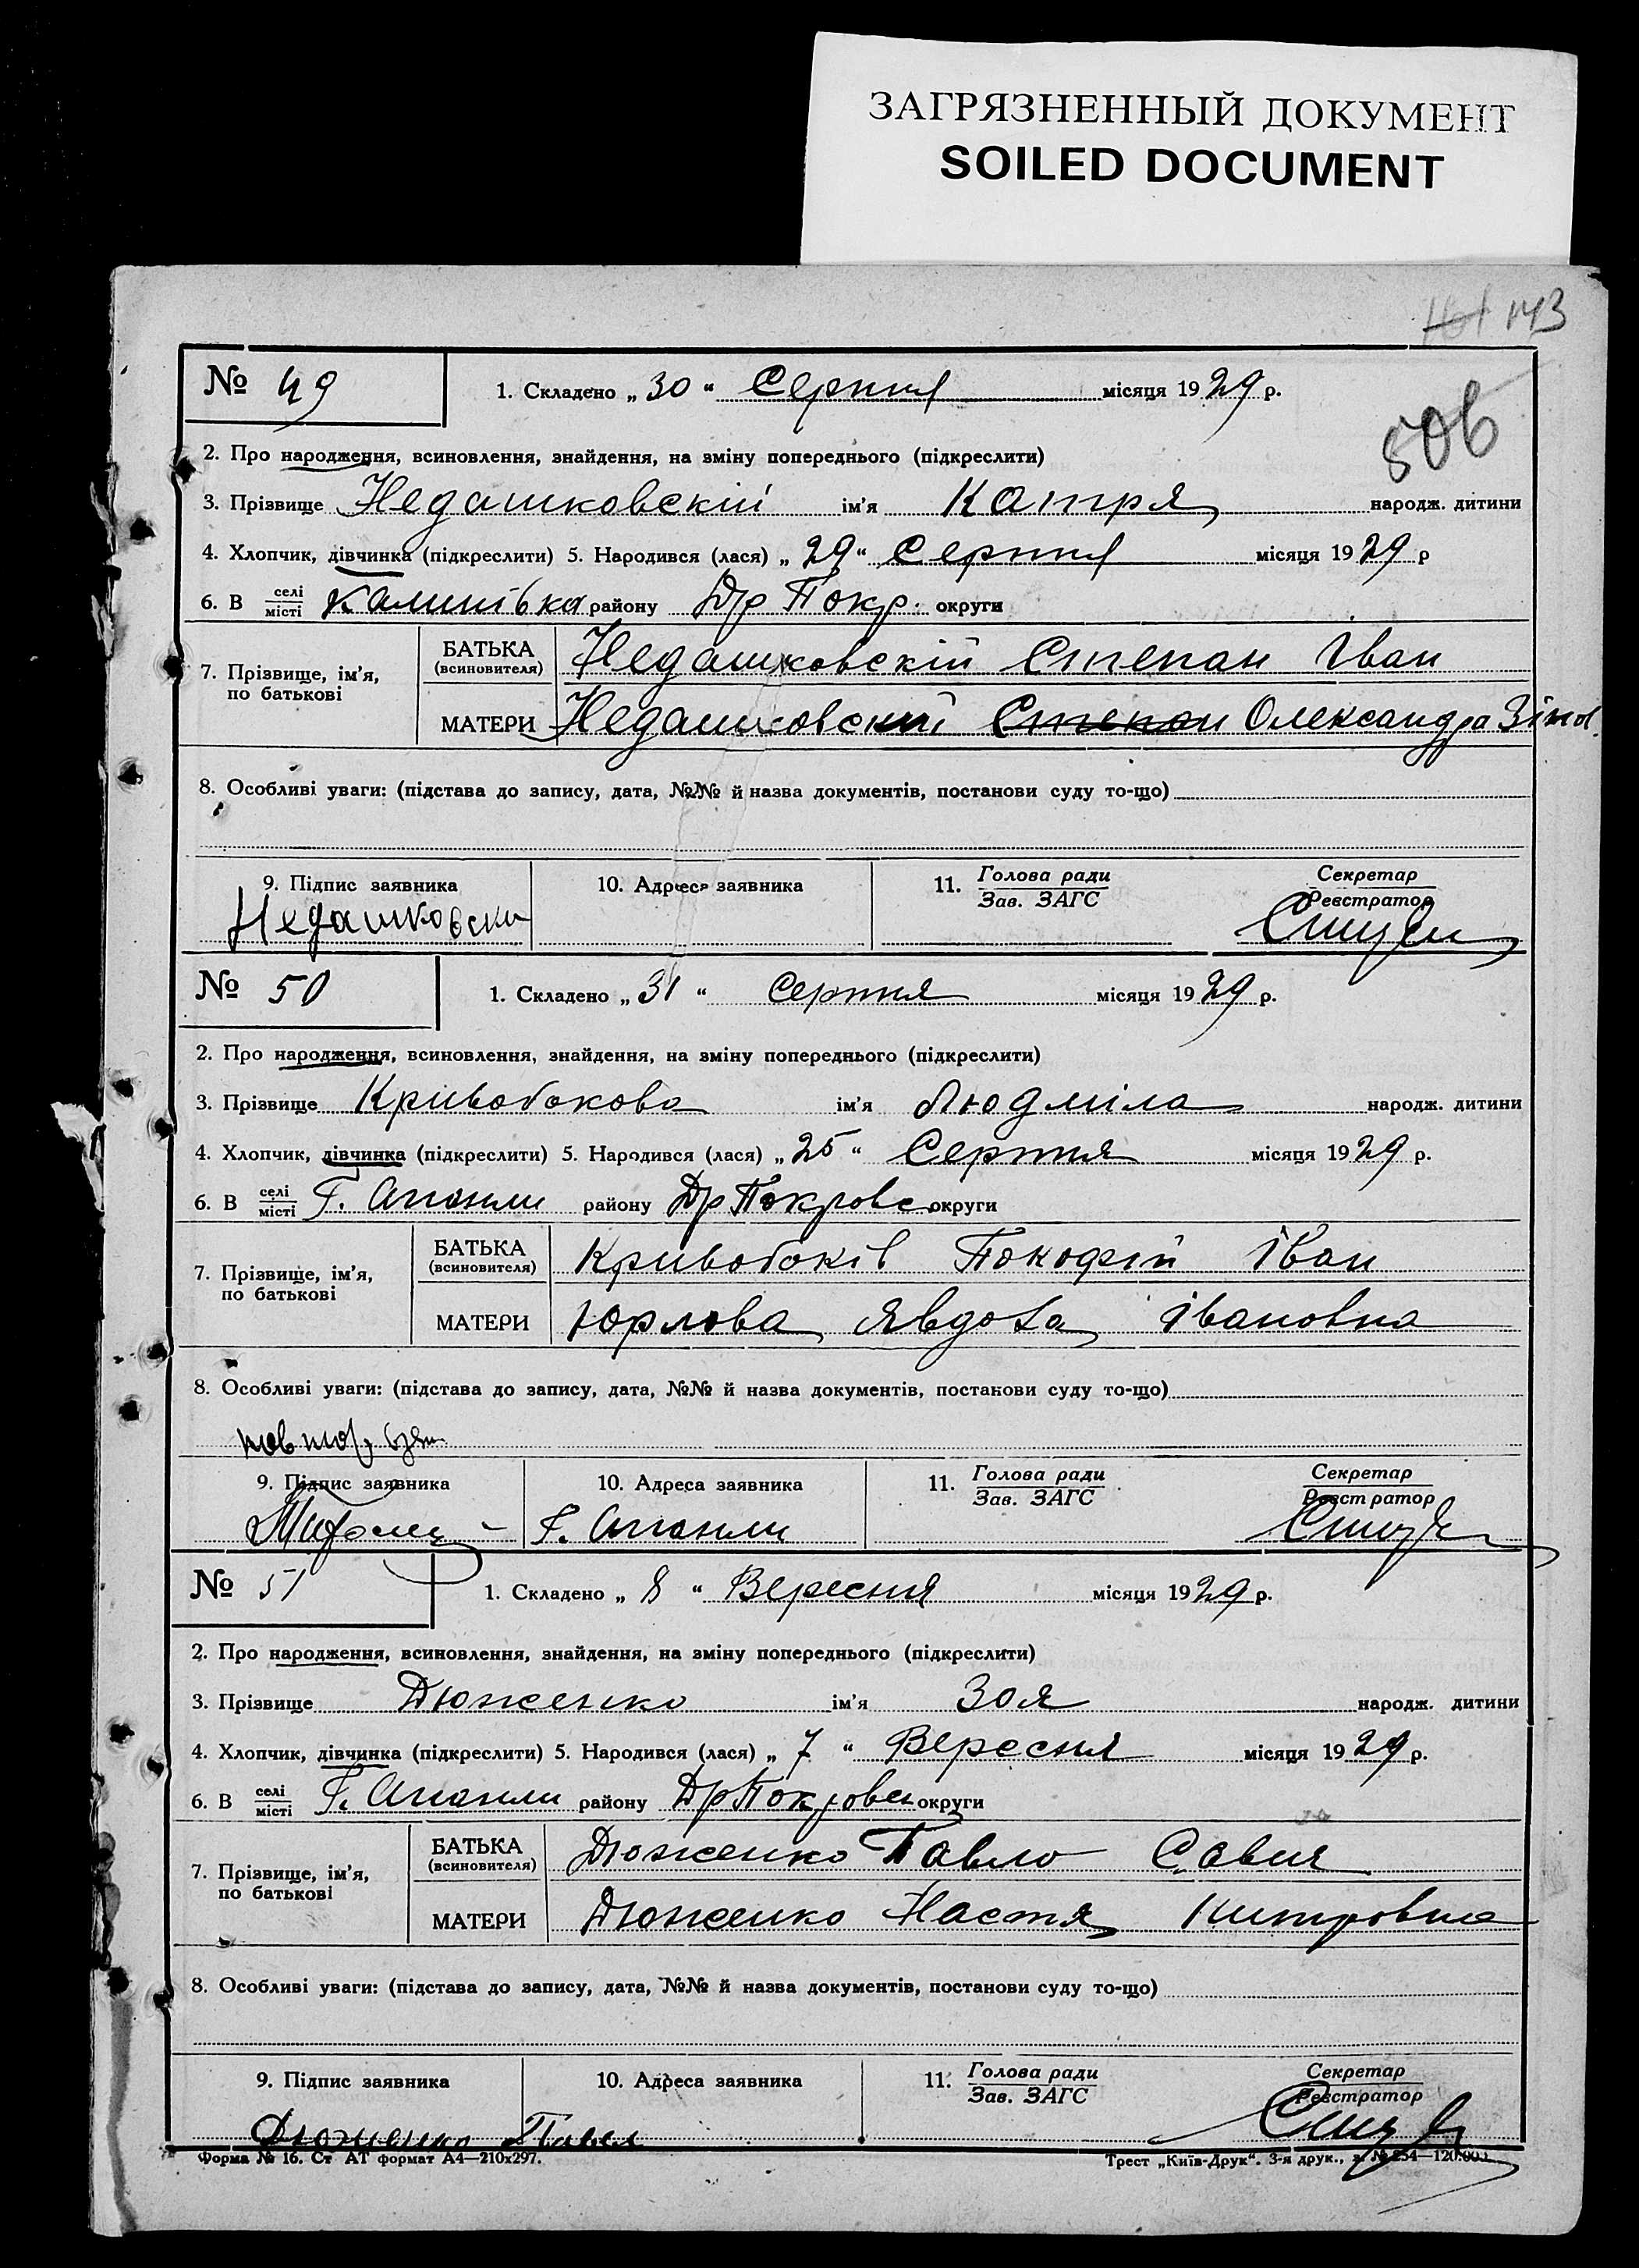 ЗАГРЯЗНЕННЫЙ ДОКУМЕНТ
SOILED DOCUMENT
161 143
№ 49 1. Складено „ 30 “ Серпня місяця 1929 р.
506
2. Про народження, всиновлення, знайдення, на зміну попереднього (підкреслити)
3. Прізвище Недашковскій ім'я Катря народж. дитини
4. Хлопчик, дівчинка (підкреслити) 5. Народився (лася) „ 29 “ Серпня місяця 1929 р
6. В селі/місті Калинівка району Др Покр. округи
7. Прізвище, ім'я, по батькові
БАТЬКА (всиновителя) Недашковскій Степан Іван
МАТЕРИ Недашковский Степан Олександра Зінов.
8. Особливі уваги: (підстава до запису, дата, №№ й назва документів, постанови суду то-що)
9. Підпис заявника 10. Адреса заявника 11. Голова ради/Зав. ЗАГС Секретар/Реєстратор
Недашковски
№ 50 1. Складено „ 31 “ Серпня місяця 1929 р.
2. Про народження, всиновлення, знайдення, на зміну попереднього (підкреслити)
3. Прізвище Кривобокова ім'я Людміла народж. дитини
4. Хлопчик, дівчинка (підкреслити) 5. Народився (лася) „ 25 “ Серпня місяця 1929 р.
6. В селі/місті Г. Апанли району Др Покровс округи
7. Прізвище, ім'я, по батькові
БАТЬКА (всиновителя) Кривобоків Покофій Іван
МАТЕРИ Юрлова Явдоха Івановна
8. Особливі уваги: (підстава до запису, дата, №№ й назва документів, постанови суду то-що)
9. Підпис заявника 10. Адреса заявника 11. Голова ради/Зав. ЗАГС Секретар/Реєстратор
Г. Апанли
№ 51 1. Складено „ 8 “ Вересня місяця 1929 р.
2. Про народження, всиновлення, знайдення, на зміну попереднього (підкреслити)
3. Прізвище Дюженко ім'я Зоя народж. дитини
4. Хлопчик, дівчинка (підкреслити) 5. Народився (лася) „ 7 “ Вересня місяця 1929 р.
6. В селі/місті Г. Апанли району Др Покровск округи
7. Прізвище, ім'я, по батькові
БАТЬКА (всиновителя) Дюженко Павло Савия
МАТЕРИ Дюженко Настя Китровна
8. Особливі уваги: (підстава до запису, дата, №№ й назва документів, постанови суду то-що)
9. Підпис заявника 10. Адреса заявника 11. Голова ради/Зав. ЗАГС Секретар/Реєстратор
Дюженко Павел
Форма № 16. Ст АТ формат А4—210х297. Трест „Київ-Друк“. 3-я друк., з. № 254—120.000